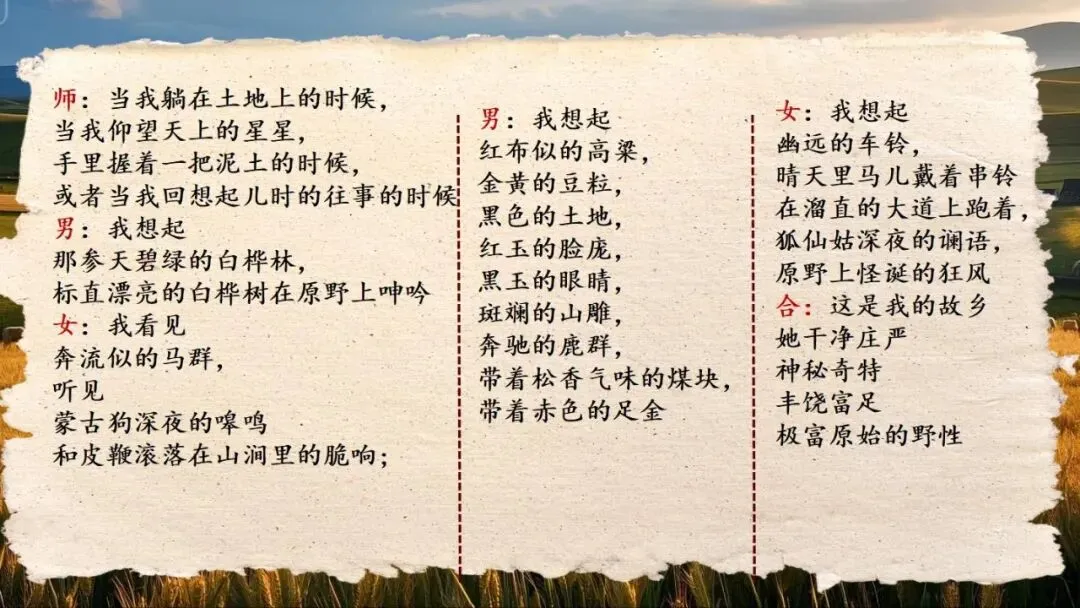 师：当我躺在土地上的时候，
当我仰望天上的星星，
手里握着一把泥土的时候，
或者当我回想起儿时的往事的时候
男：我想起
那参天碧绿的白桦林，
标直漂亮的白桦树在原野上呻吟
女：我看见
奔流似的马群，
听见
蒙古狗深夜的嗥鸣
和皮鞭滚落在山涧里的脆响；
男：我想起
红布似的高粱，
金黄的豆粒，
黑色的土地，
红玉的脸庞，
黑玉的眼睛，
斑斓的山雕，
奔驰的鹿群，
带着松香气味的煤块，
带着赤色的足金
女：我想起
幽远的车铃，
晴天里马儿戴着串铃
在溜直的大道上跑着，
狐仙姑深夜的谰语，
原野上怪诞的狂风
合：这是我的故乡
她干净庄严
神秘奇特
丰饶富足
极富原始的野性